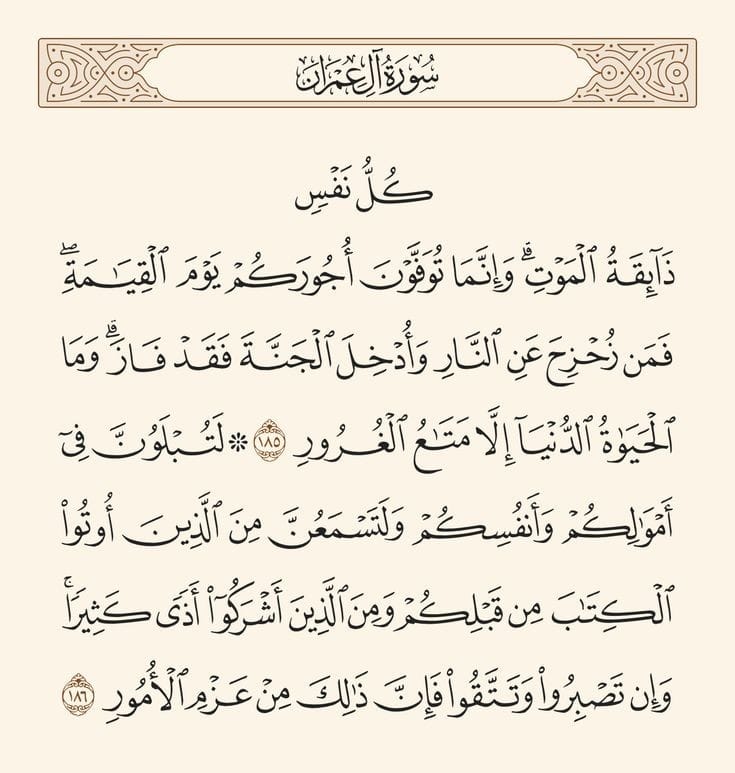 سُورَةُ آلِ عِمۡرَانَ
كُلُّ نَفۡسٖ
ذَآئِقَةُ ٱلۡمَوۡتِۗ وَإِنَّمَا تُوَفَّوۡنَ أُجُورَكُمۡ يَوۡمَ ٱلۡقِيَٰمَةِۖ
فَمَن زُحۡزِحَ عَنِ ٱلنَّارِ وَأُدۡخِلَ ٱلۡجَنَّةَ فَقَدۡ فَازَۗ وَمَا
ٱلۡحَيَوٰةُ ٱلدُّنۡيَآ إِلَّا مَتَٰعُ ٱلۡغُرُورِ ١٨٥ ۞ لَتُبۡلَوُنَّ فِيٓ
أَمۡوَٰلِكُمۡ وَأَنفُسِكُمۡ وَلَتَسۡمَعُنَّ مِنَ ٱلَّذِينَ أُوتُواْ
ٱلۡكِتَٰبَ مِن قَبۡلِكُمۡ وَمِنَ ٱلَّذِينَ أَشۡرَكُوٓاْ أَذٗى كَثِيرٗاۚ
وَإِن تَصۡبِرُواْ وَتَتَّقُواْ فَإِنَّ ذَٰلِكَ مِنۡ عَزۡمِ ٱلۡأُمُورِ ١٨٦